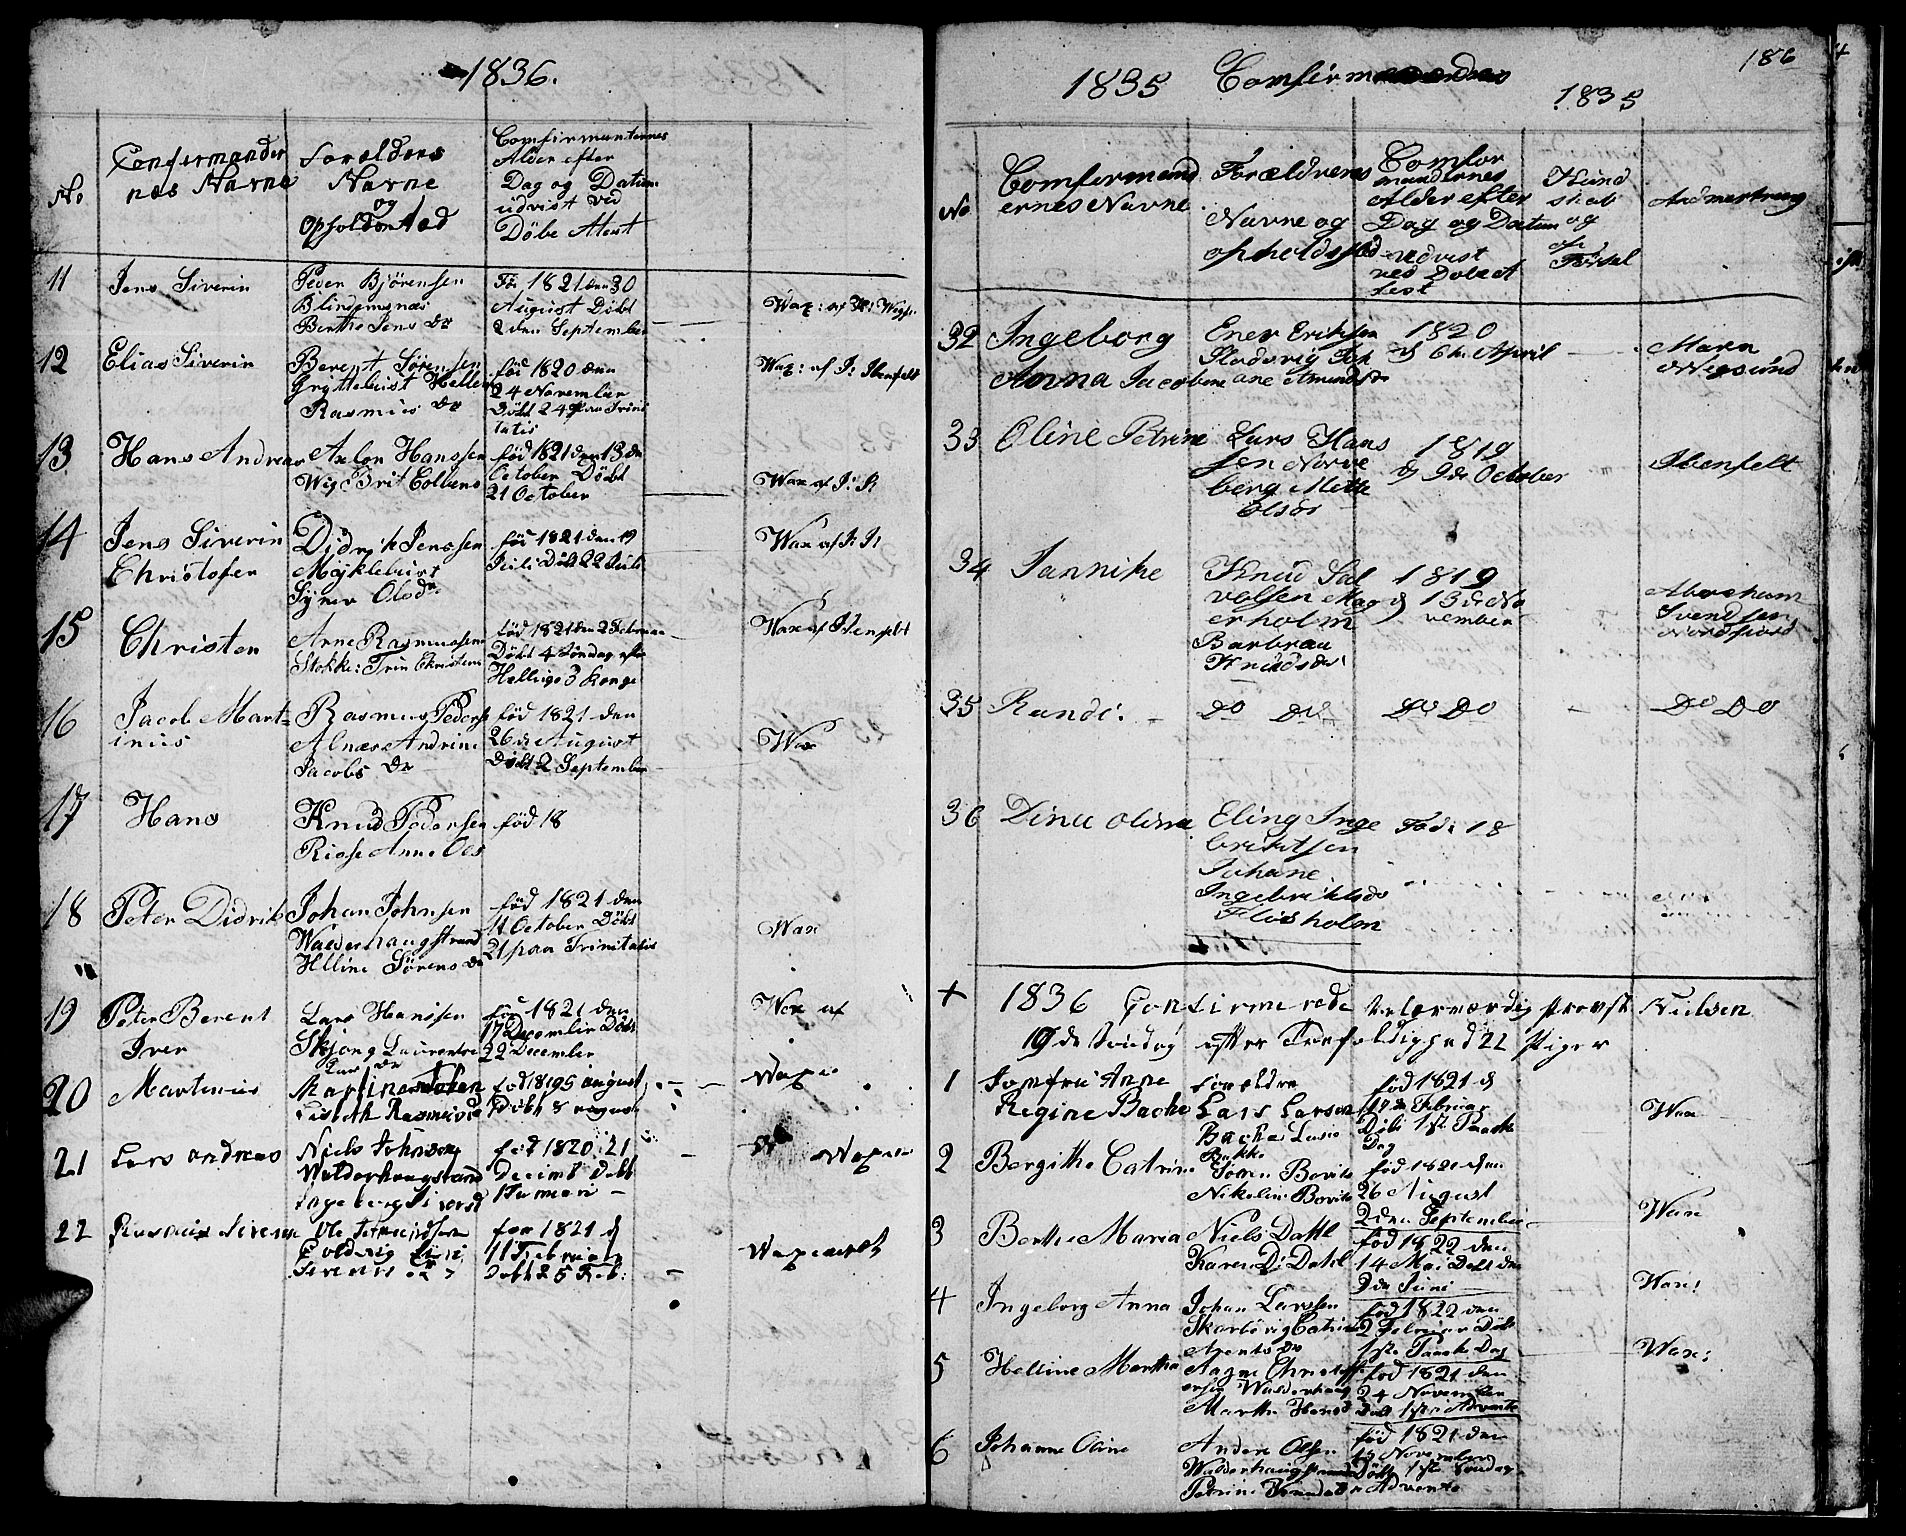 1836.
No
Confermander
nes Navne
Forældrens
Navne
og
Opholdsted
Comfirmanternes
Alder efter
Dag og Datum
udvist ved
Döbe Atest
11
Jens Siverin
Peder Bjørensen
Blindemsnæs
Berthe Jens Dr
1821 den 30
August Döbt
2 den September
Wax: af
12
Elias Siverin
Berent Sørensen
Gryttehust Hellen
Rasmus Dr
föd 1820 den
24 November
Döbt 24 paa Trini
tatis
Wax: af J: Ibenfelt
13
Hans Andreas
Hanssen
Wig Brit Colbens
föd 1821 den 13 de
October Döbt
21 October
Wax af J: I
14
Jens Siverin
Christofer
Didrik Jenssen
Myklebust
Olsdr
föd 1821 den 19
Juli Döbt 22 Juli
Wax af J: I
15
Christen
Arne Rasmussen
Stokke: Trin Christens
föd 1821 den 2 Februar
Döbt 4 Søndag efter
Hellige 3 Konge
Wax af Ibenfelt
16
Jacob Mart=
inus
Rasmus Peders
Alnæs Andrine
Jacobs Dr
föd 1821 den
26 de August
Döbt 2 September
Wax
17
Hans
Knud Pedersen
Riose Anne Ols
föd 18
18
Peter Didrik
Johan Johnsen
Walderhaugstrand
Elline Sørens Dr
föd 1821 den
11 October Döbt
21 paa Trinitatis
Wax
19
Peter Berent
Iver
Lars Hanssen
Skjong Laurentse
Lars Dr
föd 1821 den
17 December Döbt
22 December
Wax af
20
Martinus
Martinus
Lisbeth Rasmusd
föd 1819 5 august
Döbt 8 august
Waxe
21
Lars andreas
Niels Johnsen
Walderhaugstrand
Ingeborg Siversd
föd 1820: 21
Decemb Döbt
1 Januari
Waxe
22
Rasmus Siverin
Ole
föd 1821 d
11 Februar
Döbt 25 Feb:
1835
Comfirmandens
1835
186
No
Comfirmand
ernes Navne
Forældrenes
Navne og
opholdsted
Comfor
mandernes
Alder efter
Dag og Datum
udvist
ved Dobeat
test
Kund
skab
og
af
Fördsel
Andmerkning
32
Ingeborg
Anna Jacobine
Ener Eriksen
ane Amundsdr
1820
d 6 te April
Mörn
Wegsund
33
Oline Petrine
Lars Hans
sen Norve
berg Mette
Olsdr
1819
d 9 de October
Ibenfelt
34
Jannike
Knud Sal
vesen Mag
erholm
Barbrau
Knudsdr
1819
d 13 de No
vember
Aberaham
Svendsen
Nordfiord
35
Rande:
Do Do
Do Do
Do Do
36
Dinue Olina
Eling Inge
brigtsen
Johane
Ingebriktsds
Flösholm
Föd: 18
+
1836 Confirmerede Velærværdig Provst Nielsen
19 de Söndag efter Trefoldighed 22 Piger
1
Jomfru Anne
Regine Bache
Forældre
Lars Larsen
Bache Lasie
Bakke
föd 1821 d
17 de Februar
Döbt 1ste Paaske
Dag
Wax
2
Bergithe Catrine
Søren Bovits
Nikoline Bovits
föd 1821 den
26 August
2 den September
Waxe
3
Berthe Maria
Niels Dahl
Karen D: Dahl
föd 1822 den
14 Mai Döbt den
9 de Juni
Wax:
4
Ingeborg Anna
Johan Larssen
Skarbövig Catrine
Arents Dr
föd 1822 den
2 Februar Döbt
1ste Paaske Dag
Wax:
5
Helline Martha
Aagne Christoff
ersen Walderhaug
Marthe Hansd
föd 1821 den
24 November
Döbt 1ste i Advente
6
Johanne Oline
Anders Olsen
Walderhaugstrand
Petrine Knudsdr
föd 1821 den
15 November
Döbt 1ste Søndag
i Advente